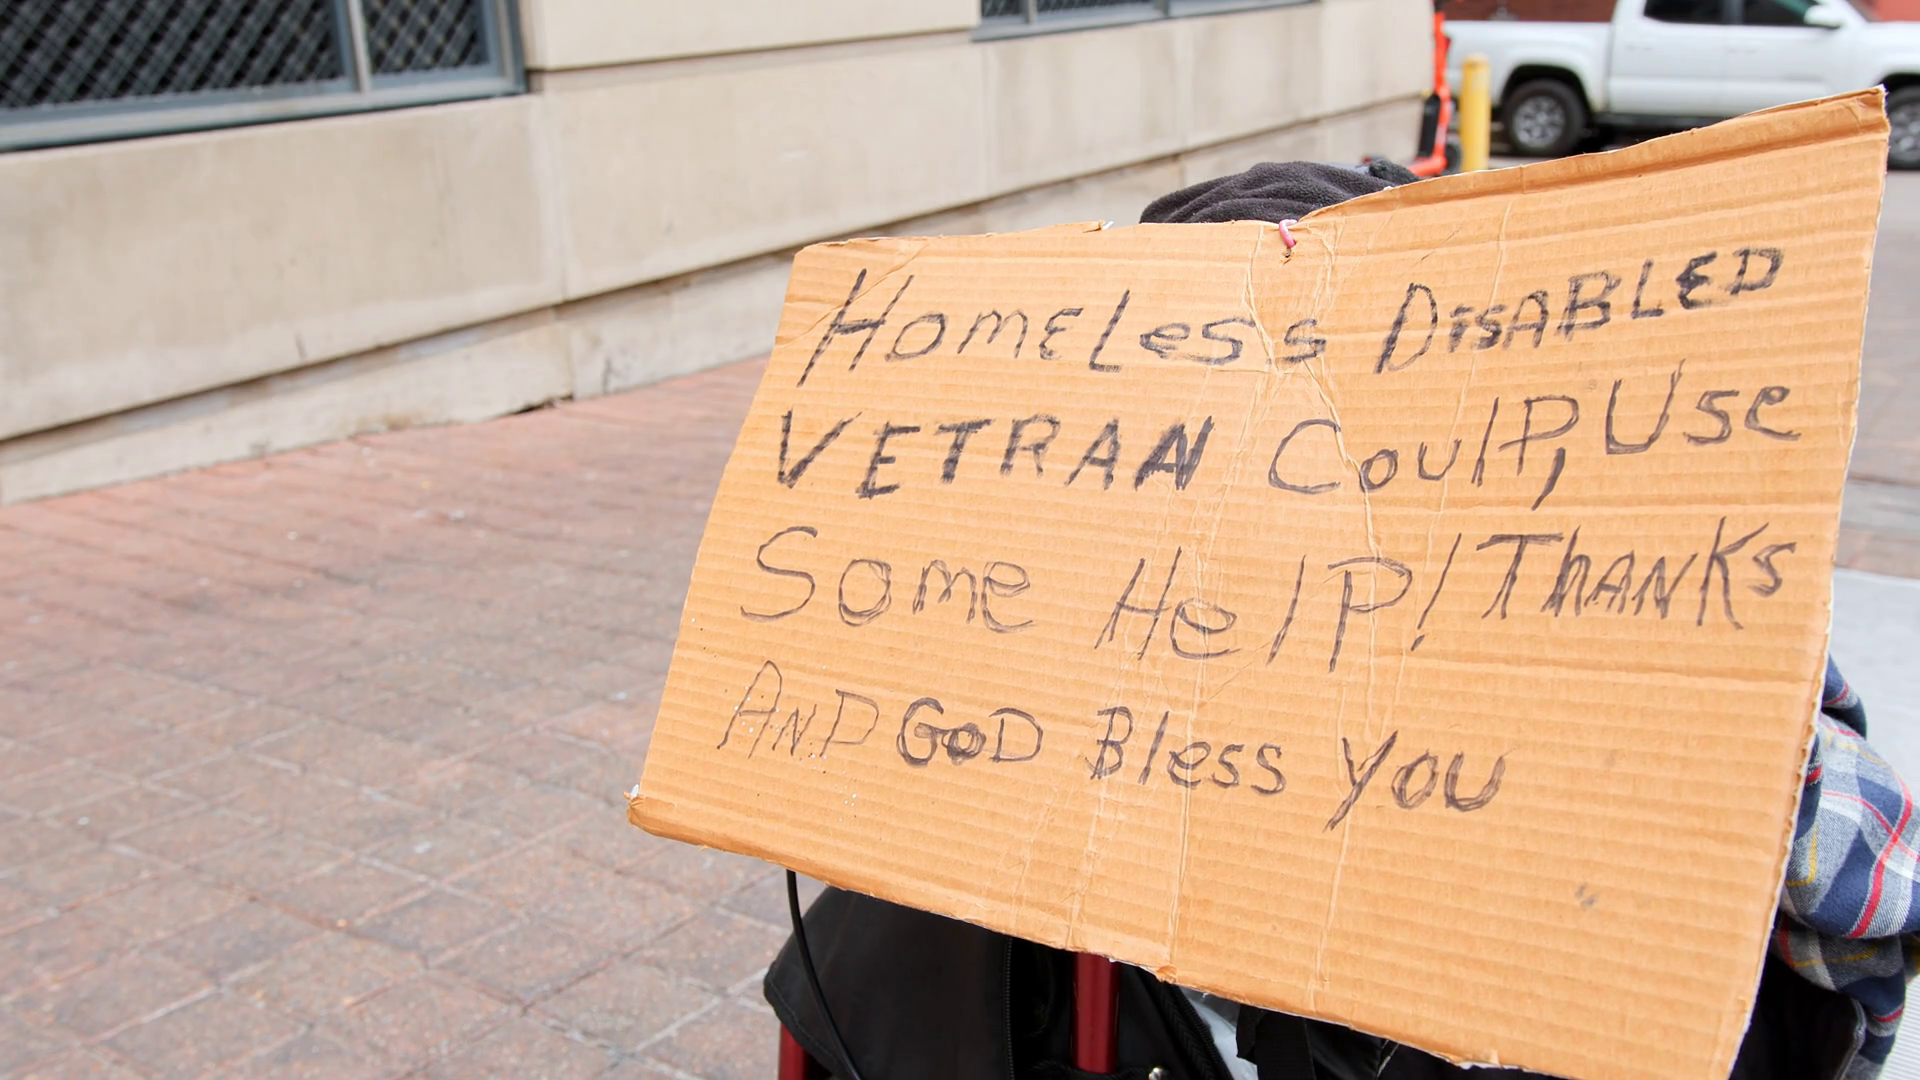 HomeLess DISABLED
VETRAN CoulD, Use
Some HelP! THANKs
AND GOD Bless you